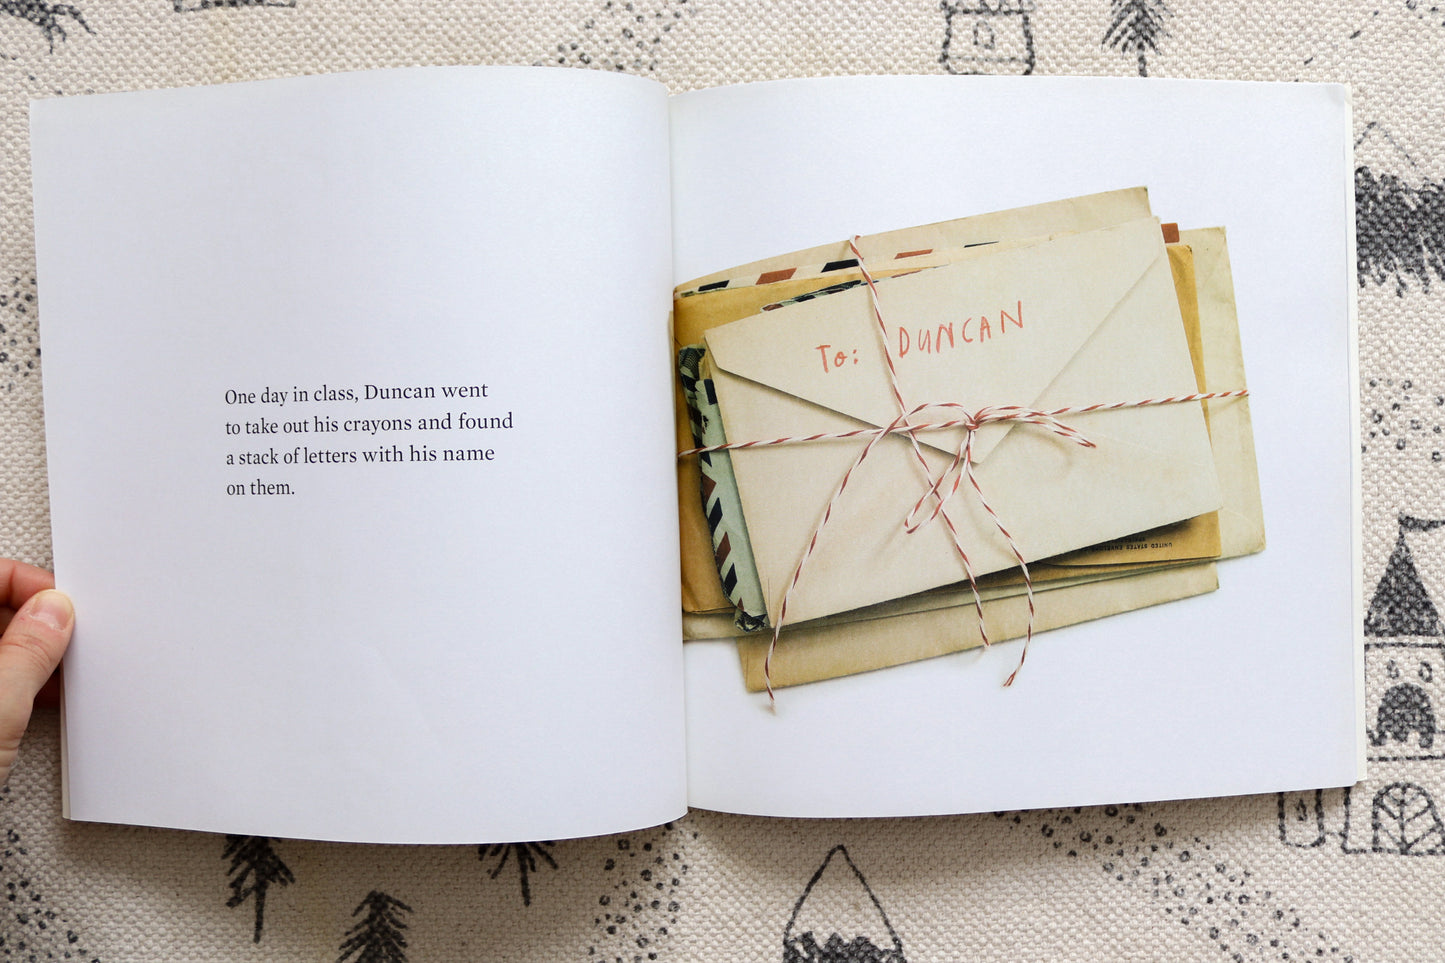 One day in class, Duncan went
to take out his crayons and found
a stack of letters with his name
on them.
To: DUNCAN
UNITED STATES ENVELOPE